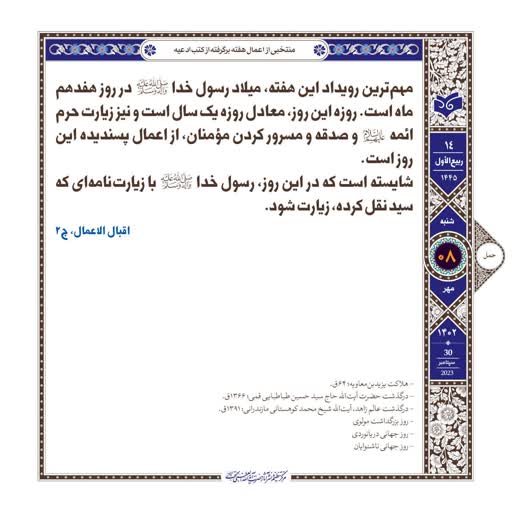 منتخبی از اعمال هفته برگرفته از کتب ادعیه
مهم‌ترین رویداد این هفته، میلاد رسول خدا ﷺ در روز هفدهم
ماه است. روزه این روز، معادل روزه یک سال است و نیز زیارت حرم
ائمه علیهم‌السلام و صدقه و مسرور کردن مؤمنان، از اعمال پسندیده این
روز است.
شایسته است که در این روز، رسول خدا ﷺ با زیارت‌نامه‌ای که
سید نقل کرده، زیارت شود.
اقبال الاعمال، ج۲
۱۴
ربیع‌الأول
۱۴۴۵
شنبه
حمل
۰۸
مهر
۱۴۰۲
30
سپتامبر
2023
- هلاکت یزیدبن‌معاویه؛ ۶۴ق.
- درگذشت حضرت آیت‌الله حاج سید حسین طباطبایی قمی؛ ۱۳۶۶ق.
- درگذشت عالم زاهد، آیت‌الله شیخ محمد کوهستانی مازندرانی؛ ۱۳۹۱ق.
- روز بزرگداشت مولوی
- روز جهانی دریانوردی
- روز جهانی ناشنوایان